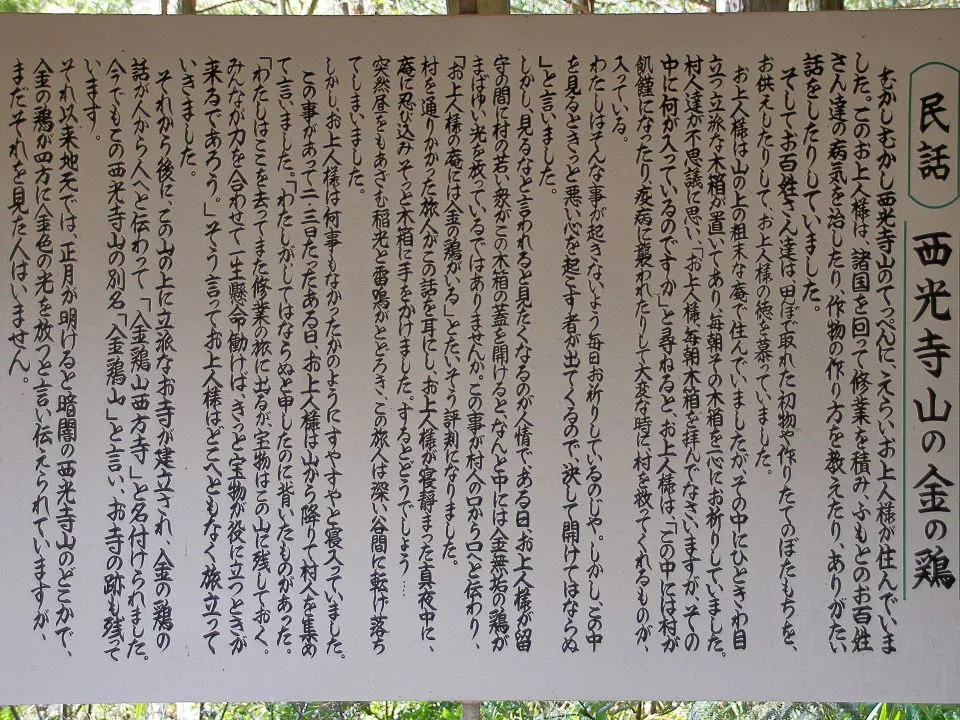 民話 西光寺山の金の鶏
むかしむかし西光寺山のてっぺんに、えらいお上人様が住んでいま
した。このお上人様は、諸国を回って修業を積み、ふもとのお百姓
さん達の病気を治したり、作物の作り方を教えたり、ありがたい
話をしたりしていました。
そしてお百姓さん達は田んぼで取れた初物や作りたてのぼたもちを、
お供えしたりして、お上人様の徳を慕っていました。
お上人様は山の上の粗末な庵で住んでいましたが、その中にひときわ目
立つ立派な木箱が置いてあり、毎朝その木箱を一心にお祈りしていました。
村人達が不思議に思い、「お上人様、毎朝木箱を拝んでなさいますが、その
中に何が入っているのですか」と尋ねると、お上人様は「この中には村が
飢饉になったり、疫病に襲われたりして大変な時に、村を救ってくれるものが、
入っている。
わたしはそんな事が起きないよう毎日お祈りしているのじゃ。しかし、この中
を見るときっと悪い心を起こす者が出てくるので、決して開けてはならぬ
」と言いました。
しかし、見るなと言われると見たくなるのが人情で、ある日、お上人様が留
守の間に村の若い衆がこの木箱の蓋を開けると、なんと中には金無垢の鶏が
まばゆい光を放っているではありませんか。この事が村人の口から口へと伝わり、
「お上人様の庵には金の鶏がいる」とたいそう評判になりました。
村を通りかかった旅人がこの話を耳にし、お上人様が寝静まった真夜中に、
庵に忍び込みそっと木箱に手をかけました。するとどうでしょう…
突然昼をもあざむく稲光と雷鳴がとどろき、この旅人は深い谷間に転げ落ち
てしまいました。
しかし、お上人様は何事もなかったかのようにすやすやと寝入っていました。
この事があって二・三日たったある日、お上人様は山から降りて村人を集め
て言いました。「わたしがしてはならぬと申したのに背いたものがあった。
「わたしはここを去ってまた修業の旅に出るが、宝物はこの山に残しておく。
みんなが力を合わせて一生懸命働けば、きっと宝物が役に立つときが
来るであろう。」そう言ってお上人様はどこへともなく旅立って
いきました。
それから後に、この山の上に立派なお寺が建立され、金の鶏の
話が人から人へと伝わって、「金鶏山西方寺」と名付けられました。
今でもこの西光寺山の別名「金鶏山」と言い、お寺の跡も残って
います。
それ以来地元では、正月が明けると暗闇の西光寺山のどこかで、
金の鶏が四方に金色の光を放つと言い伝えられていますが、
まだそれを見た人はいません。